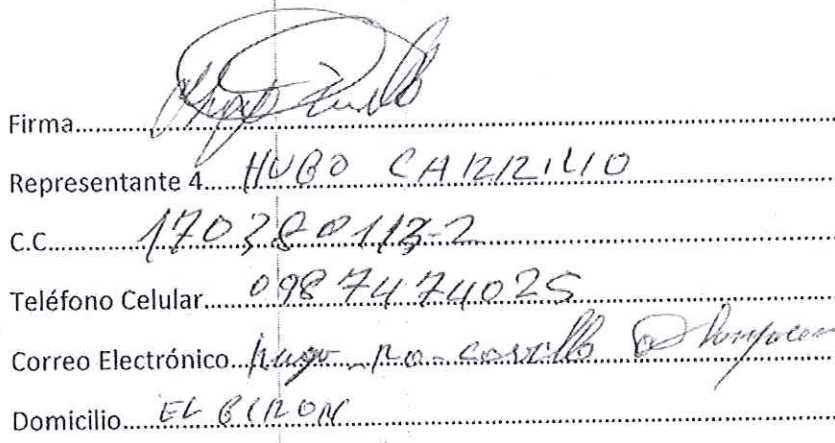 Firma
Representante 4 HUGO CARRILLO
C.C. 170380113-2
Teléfono Celular 0987474025
Correo Electrónico
Domicilio EL GIRON